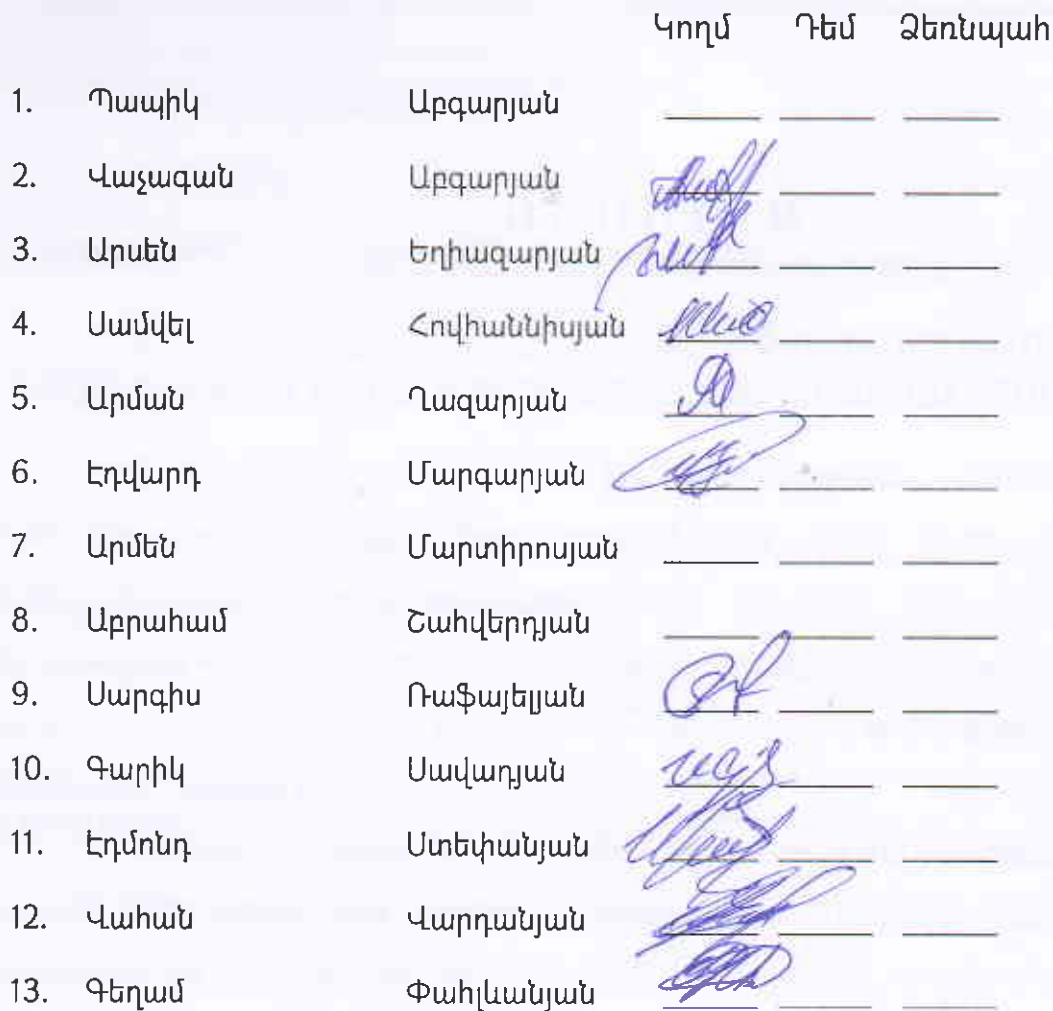 Կողմ Դեմ Ձեռնպահ
1. Պապիկ Աբգարյան
2. Վաչագան Աբգարյան
3. Արսեն Եղիազարյան
4. Սամվել Հովհաննիսյան
5. Արման Ղազարյան
6. Էդվարդ Մարգարյան
7. Արմեն Մարտիրոսյան
8. Աբրահամ Շահվերդյան
9. Սարգիս Ռաֆայելյան
10. Գարիկ Սավադյան
11. Էդմոնդ Ստեփանյան
12. Վահան Վարդանյան
13. Գեղամ Փահլևանյան